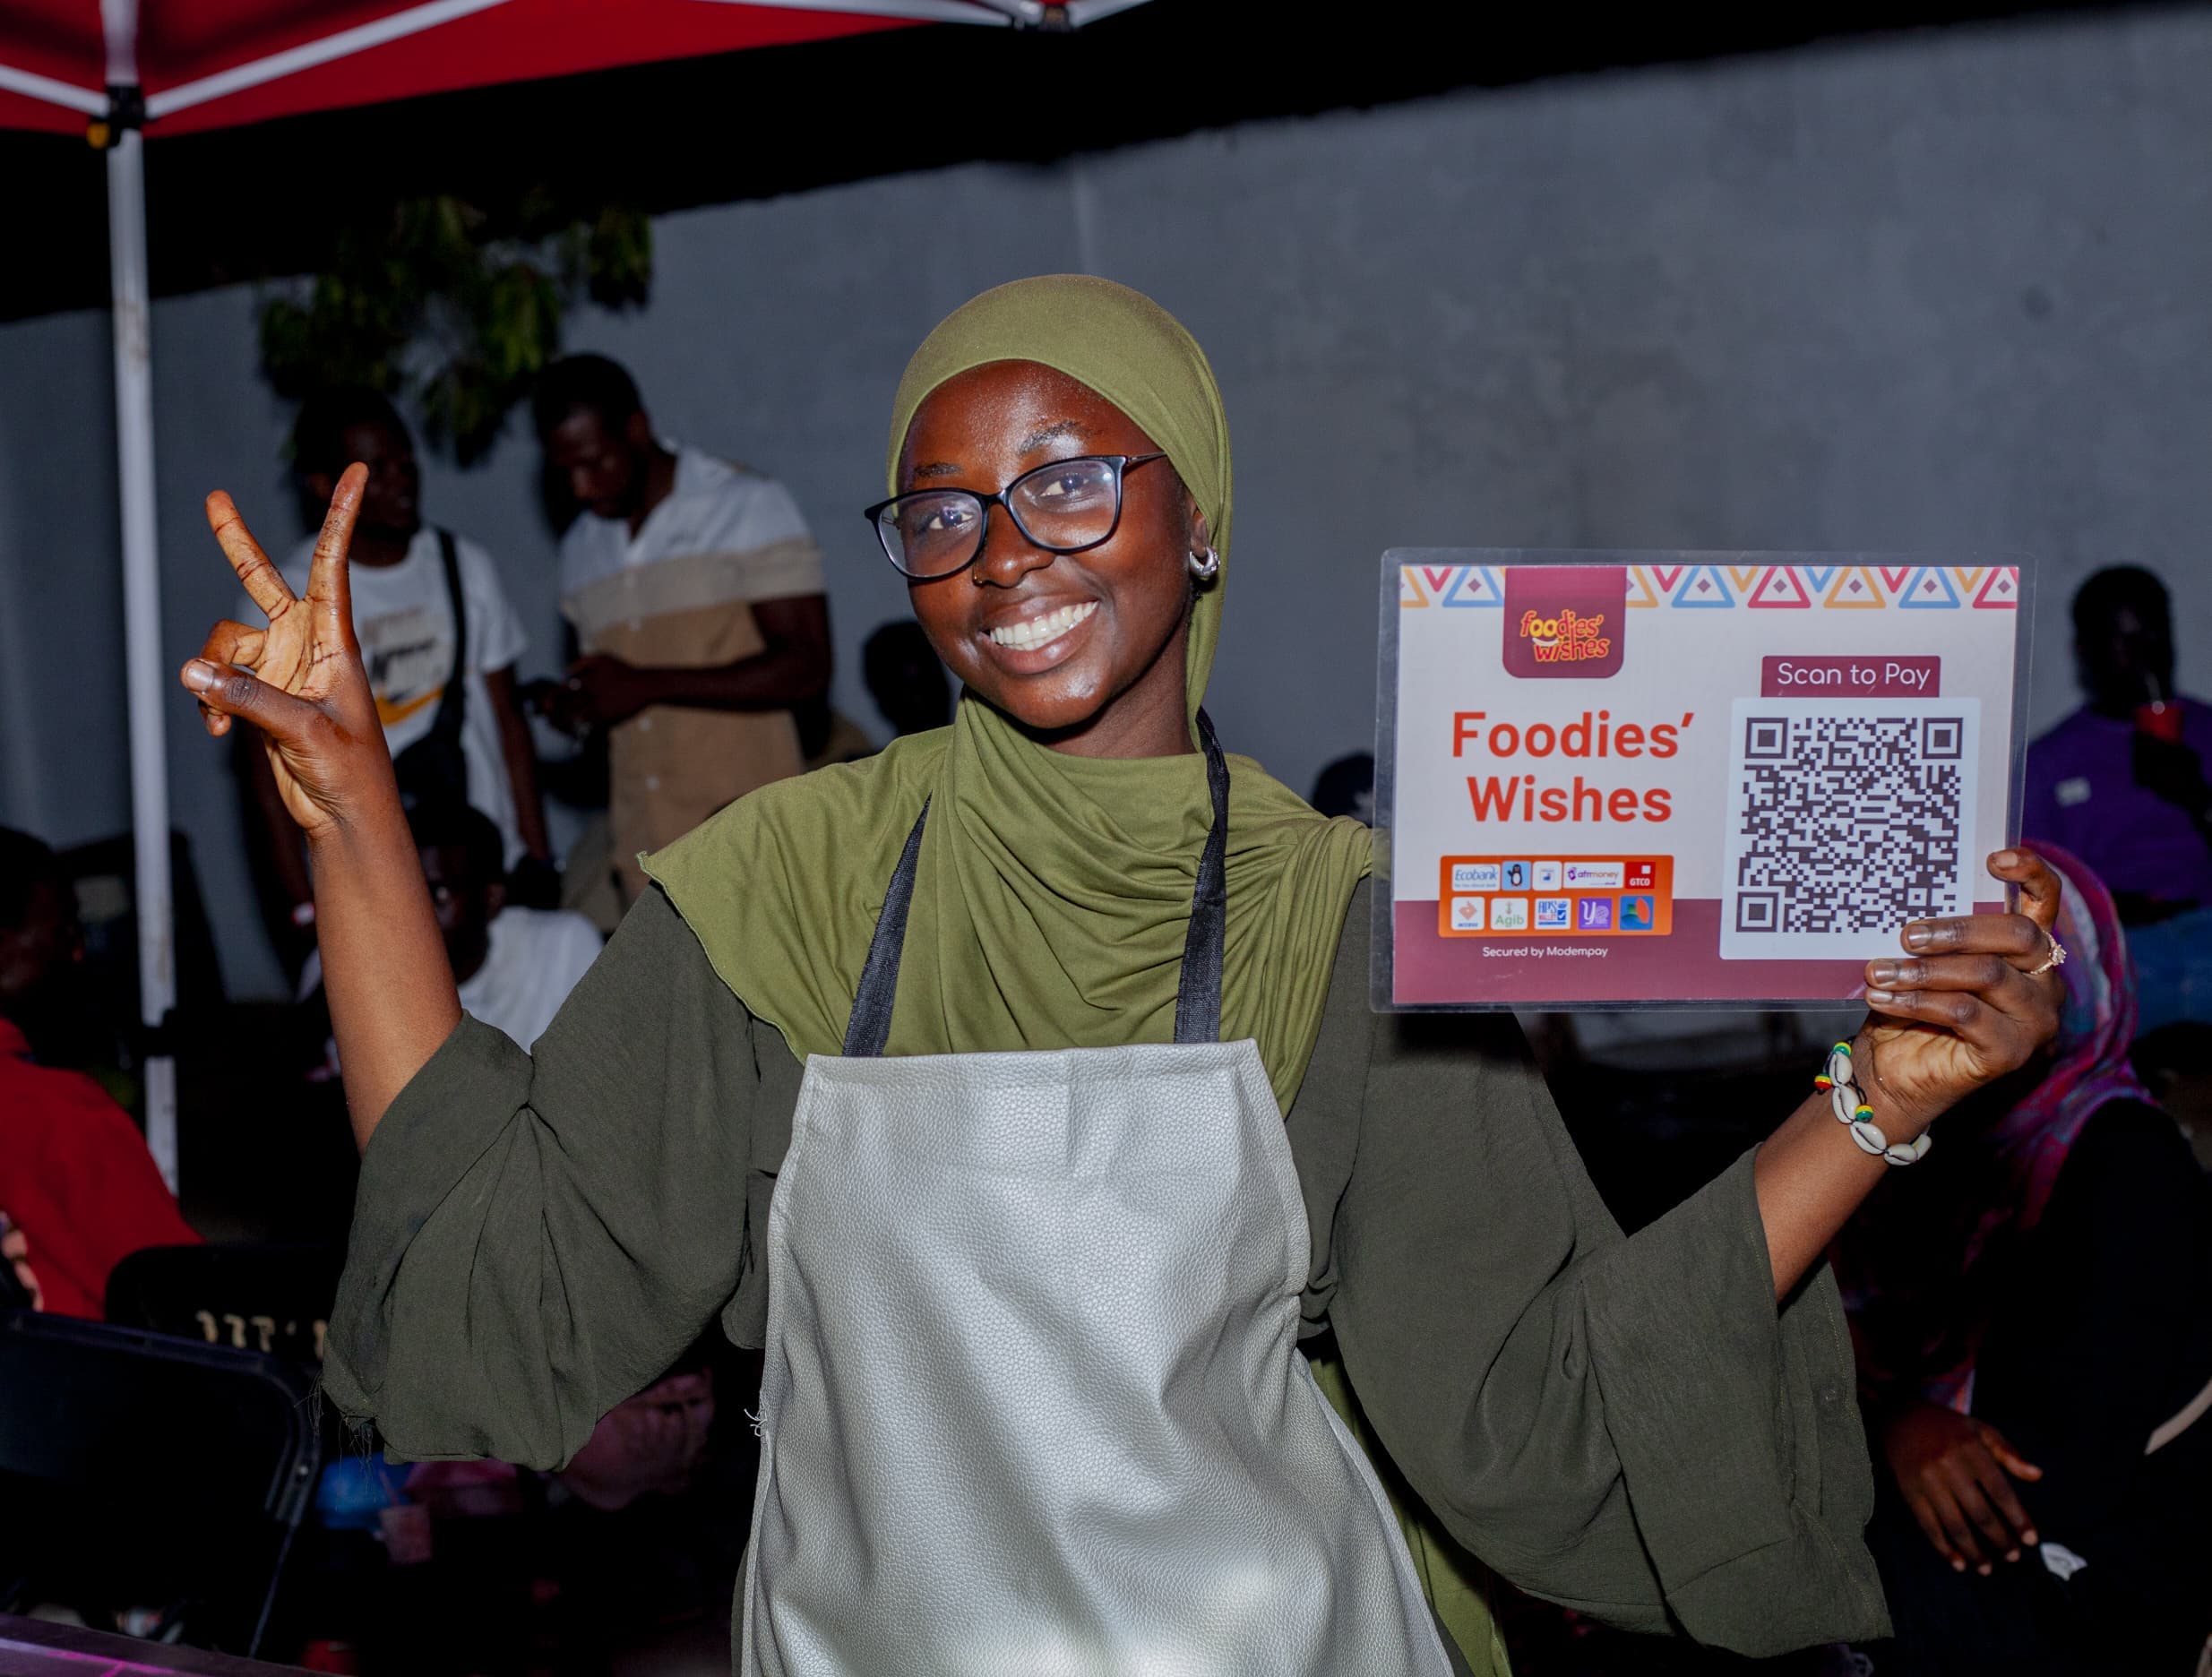 foodies'
wishes
Scan to Pay
Foodies'
Wishes
Ecobank
afrimoney
GTCO
access
Agib
APS
Secured by Modempay